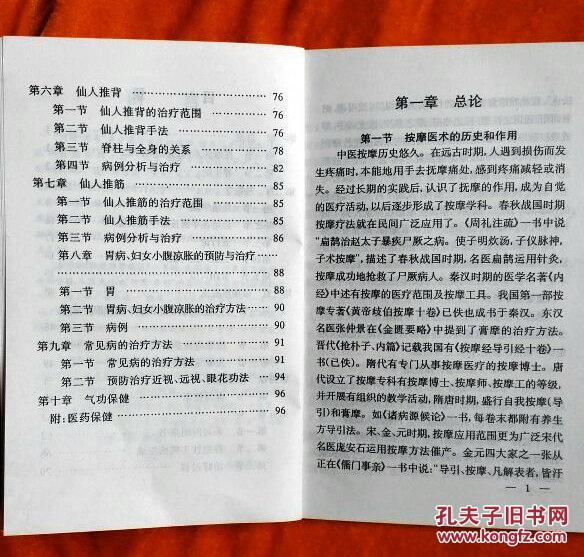 第六章 仙人推背 …… 76
第一节 仙人推背的治疗范围 …… 76
第二节 仙人推背手法 …… 76
第三节 脊柱与全身的关系 …… 78
第四节 病例分析与治疗 …… 82
第七章 仙人推筋 …… 85
第一节 仙人推筋的治疗范围 …… 85
第二节 仙人推筋手法 …… 85
第三节 病例分析与治疗 …… 86
第八章 胃病、妇女小腹凉胀的预防与治疗 ……
…… 88
第一节 胃 …… 88
第二节 胃病、妇女小腹凉胀的治疗方法 …… 90
第三节 病例 …… 90
第九章 常见病的治疗方法 …… 91
第一节 常见病的治疗方法 …… 91
第二节 预防治疗近视、远视、眼花功法 …… 94
第十章 气功保健 …… 96
附:医药保健 …… 96
第一章 总论
第一节 按摩医术的历史和作用
中医按摩历史悠久。在远古时期,人遇到损伤而发
生疼痛时,本能地用手去抚摩痛处,感到疼痛减轻或消
失。经过长期的实践后,认识了抚摩的作用,成为自觉
的医疗活动,以后逐步形成了按摩学科。春秋战国时期
按摩疗法就在民间广泛应用了。《周礼注疏》一书中说
“扁鹊治赵太子暴疾尸厥之病。使子明炊汤,子仪脉神,
子术按摩”,描述了春秋战国时期,名医扁鹊运用针灸、
按摩成功地抢救了尸厥病人。秦汉时期的医学名著《内
经》中述有按摩的医疗范围及按摩工具。我国第一部按
摩专著《黄帝歧伯按摩十卷》已佚也成书于秦汉。东汉
名医张仲景在《金匮要略》中提到了膏摩的治疗方法。
晋代《抱朴子、内篇》记载我国有《按摩经导引经十卷》一
书(已佚)。隋代有专门从事按摩医疗的按摩博士。唐
代设立了按摩专科有按摩博士、按摩师、按摩工的等级,
并开展有组织的教学活动,隋唐时期,盛行自我按摩(导
引)和膏摩。如《诸病源候论》一书,每卷末都附有养生
方导引法。宋、金、元时期,按摩应用范围更为广泛宋代
名医庞安石运用按摩方法催产。金元四大家之一张从
正在《儒门事亲》一书中说:“导引、按摩、凡解表者,皆汗
— 1 —
孔夫子旧书网